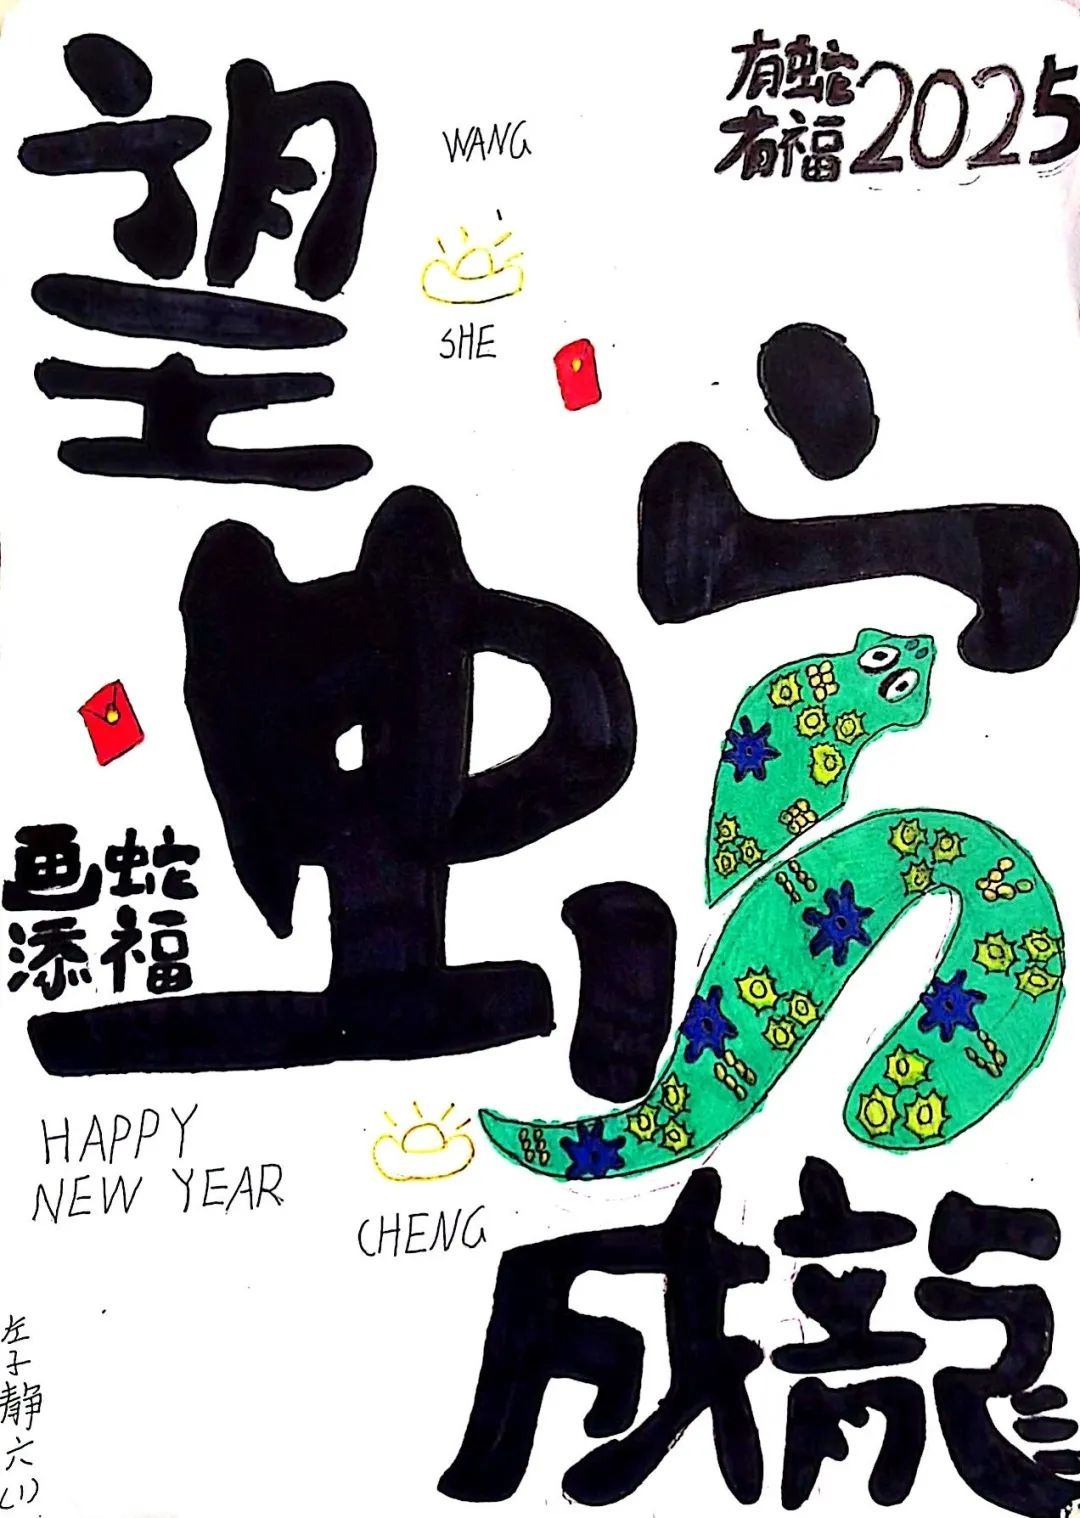 望
WANG
有蛇
有福
2025
SHE
蛇
画蛇
添福
HAPPY
NEW YEAR
CHENG
成龍
左子静六(1)